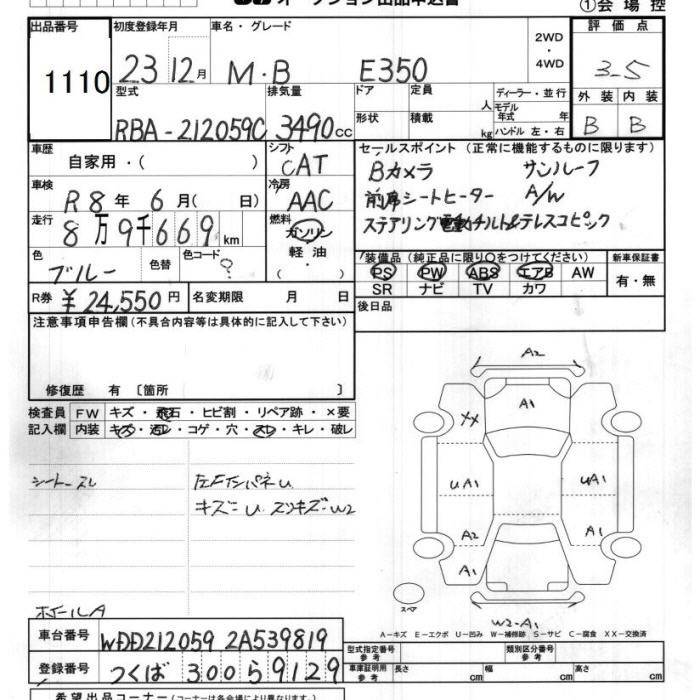 ①会場控
出品番号 初度登録年月 車名・グレード 2WD ・ 4WD 評価点
1110 23 12月 M・B E350 3-5
型式 排気量 ドア 定員 人 ディーラー・並行 外装 内装
RBA-212059C 3490cc 形状 積載 kg モデル年式 年 ハンドル 左・右 B B
車歴 自家用・( ) シフト CAT セールスポイント (正常に機能するものに限ります)
Bカメラ サンルーフ
車検 R8年 6月( 日) 冷房 AAC 前席シートヒーター A/W
走行 8万9千669km 燃料 ガソリン ・ 軽油 ・( ) ステアリング電動チルト&テレスコピック
色 ブルー 色替 色コード ? 装備品 (純正品に限り○をつけてください) 新車保証書
PS PW ABS エアB AW 有・無
SR ナビ TV カワ
R券 ¥24,550円 名変期限 月 日 後日品
注意事項申告欄(不具合内容等は具体的に記入して下さい)
修復歴 有 〔箇所 〕
検査員 FW キズ・飛石・ヒビ割・リペア跡・×要
記入欄 内装 キズ・汚レ・コゲ・穴・スレ・キレ・破レ
シートスレ 左FインパネU
キズ=U スソキズ=W2
ホイールA
A2
A1
XX
UA1 UA1
A2 A1
A1
スペア
W2-A1
A-キズ E-エクボ U-凹み W-補修跡 S-サビ C-腐食 XX-交換済
車台番号 WDD212059 2A539819
登録番号 つくば 300 ら 9129
型式指定番号 参考 類別区分番号 参考
車庫証明用 参考 長さ cm 幅 cm 高さ cm
希望出品コーナー(コーナーは各会場により異なります)